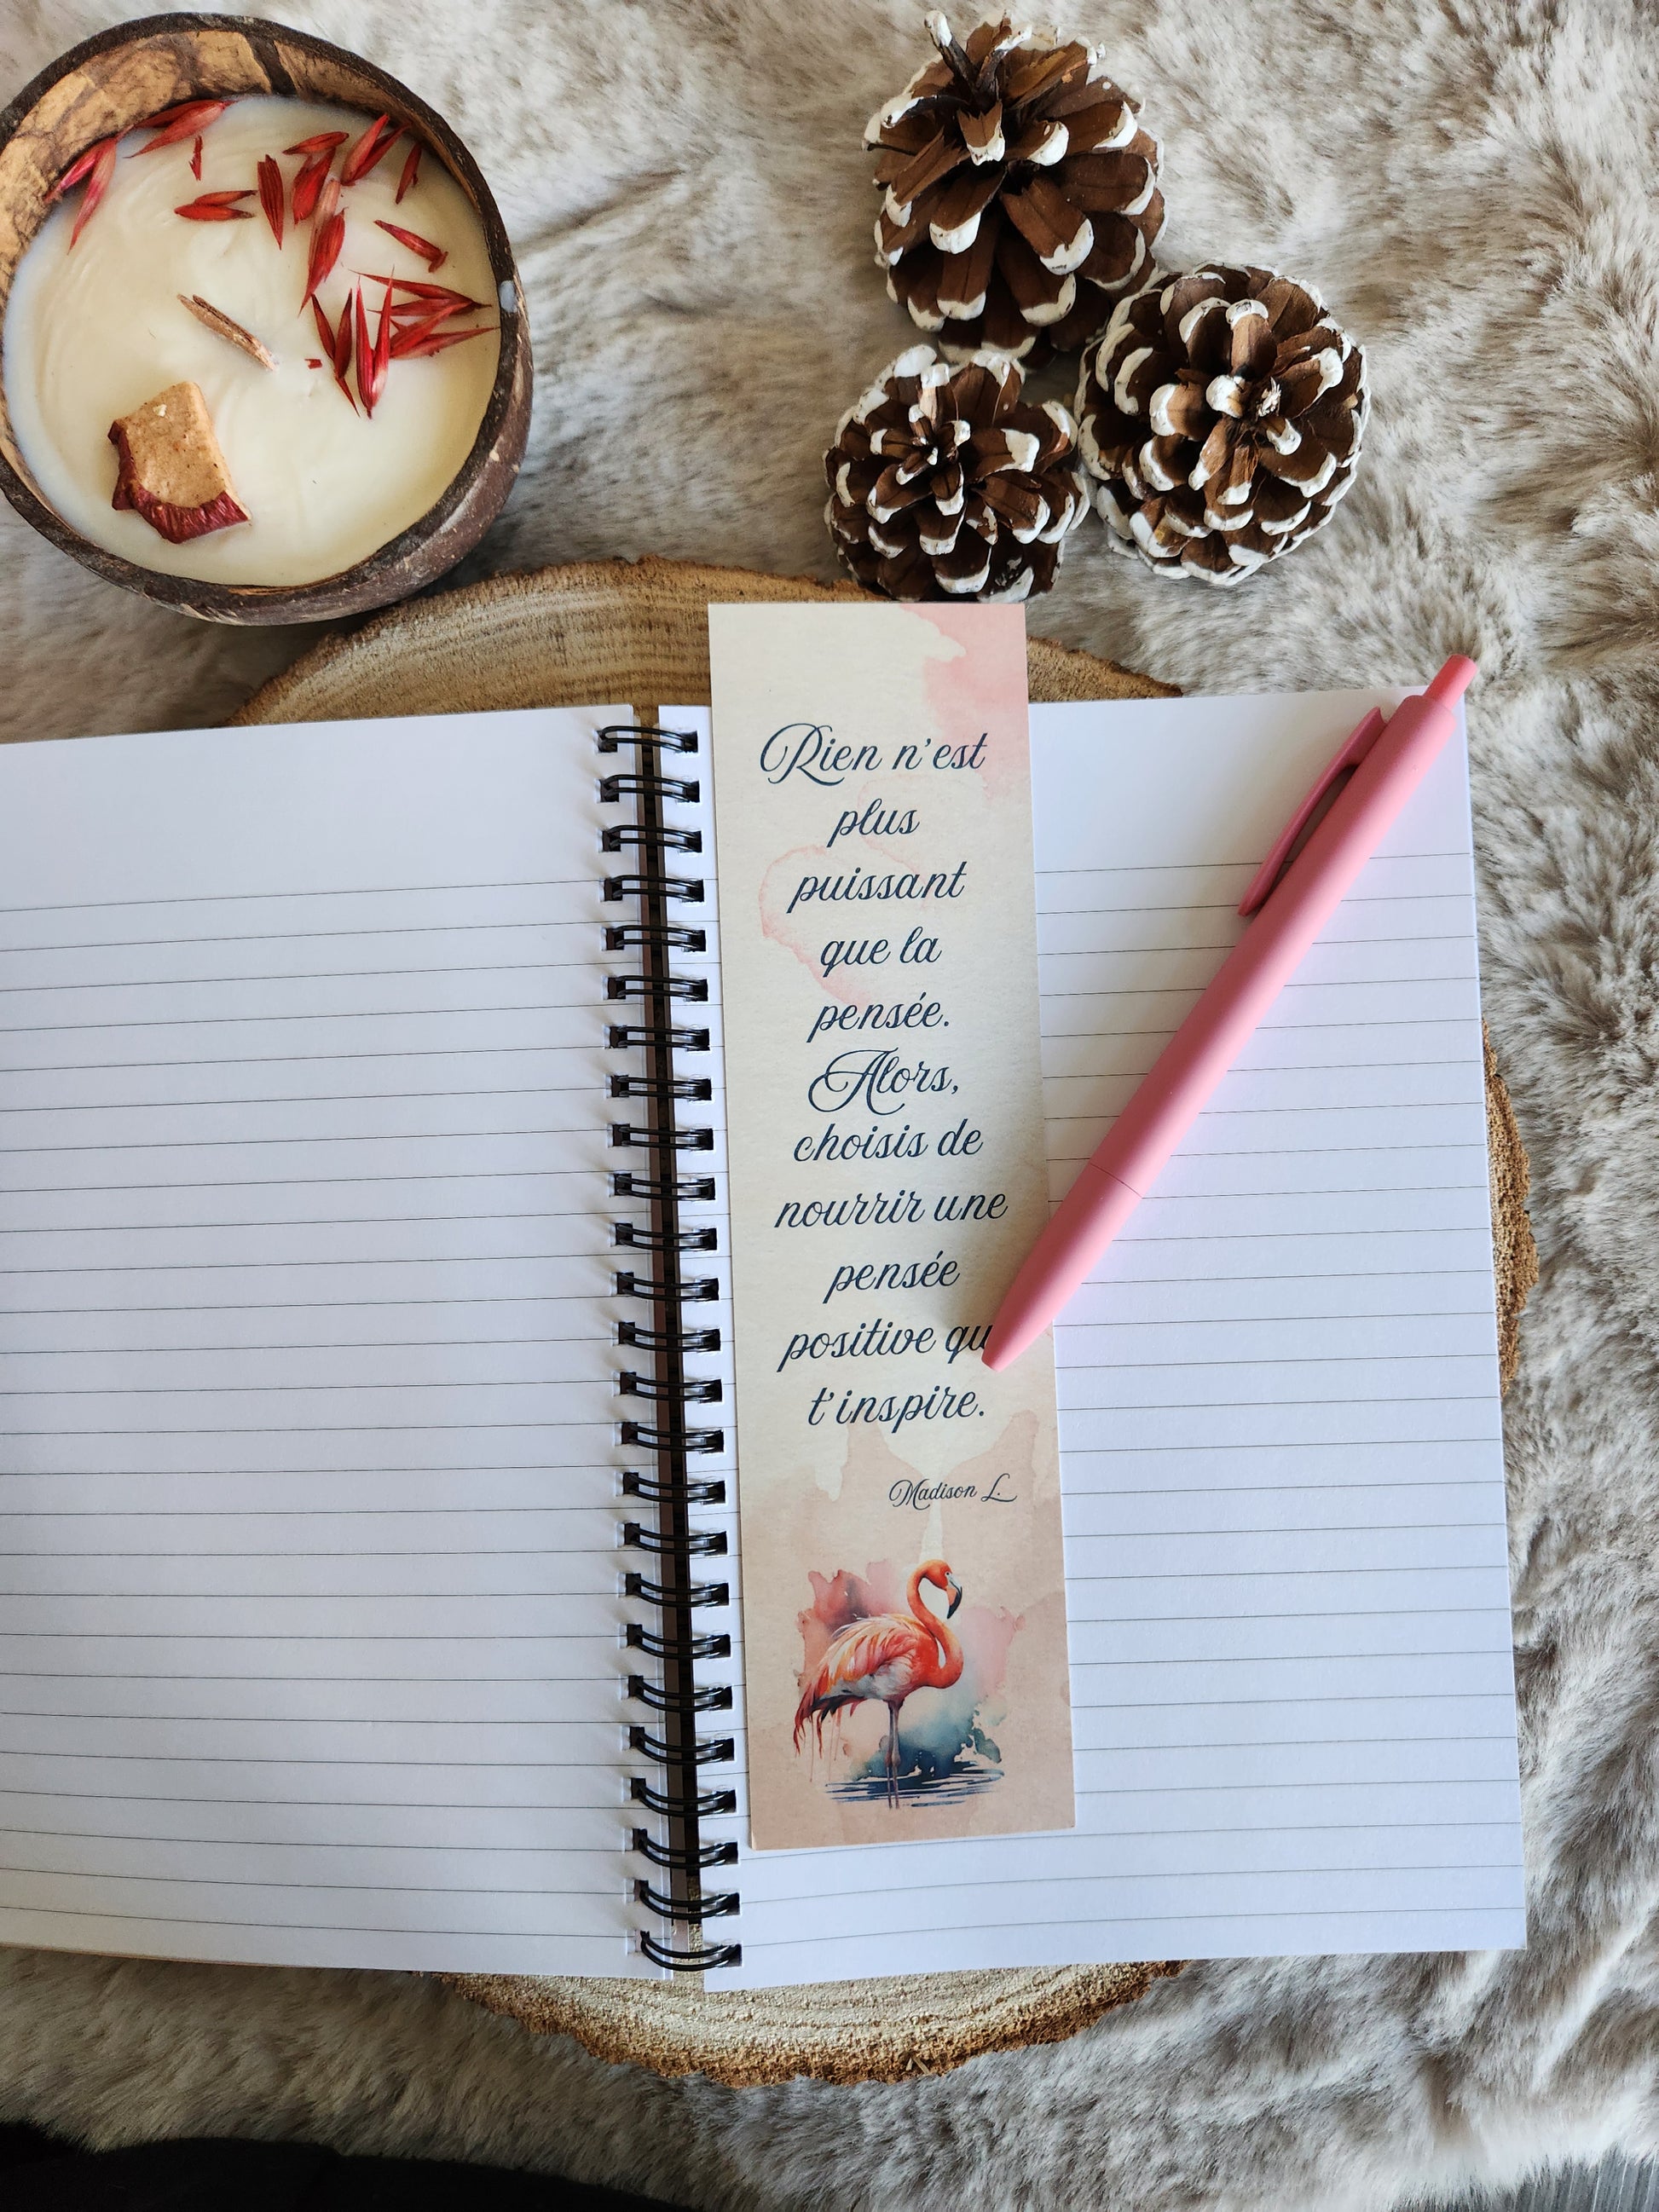 Rien n'est
plus
puissant
que la
pensée.
Alors,
choisis de
nourrir une
pensée
positive
t'inspire.
Madison L.